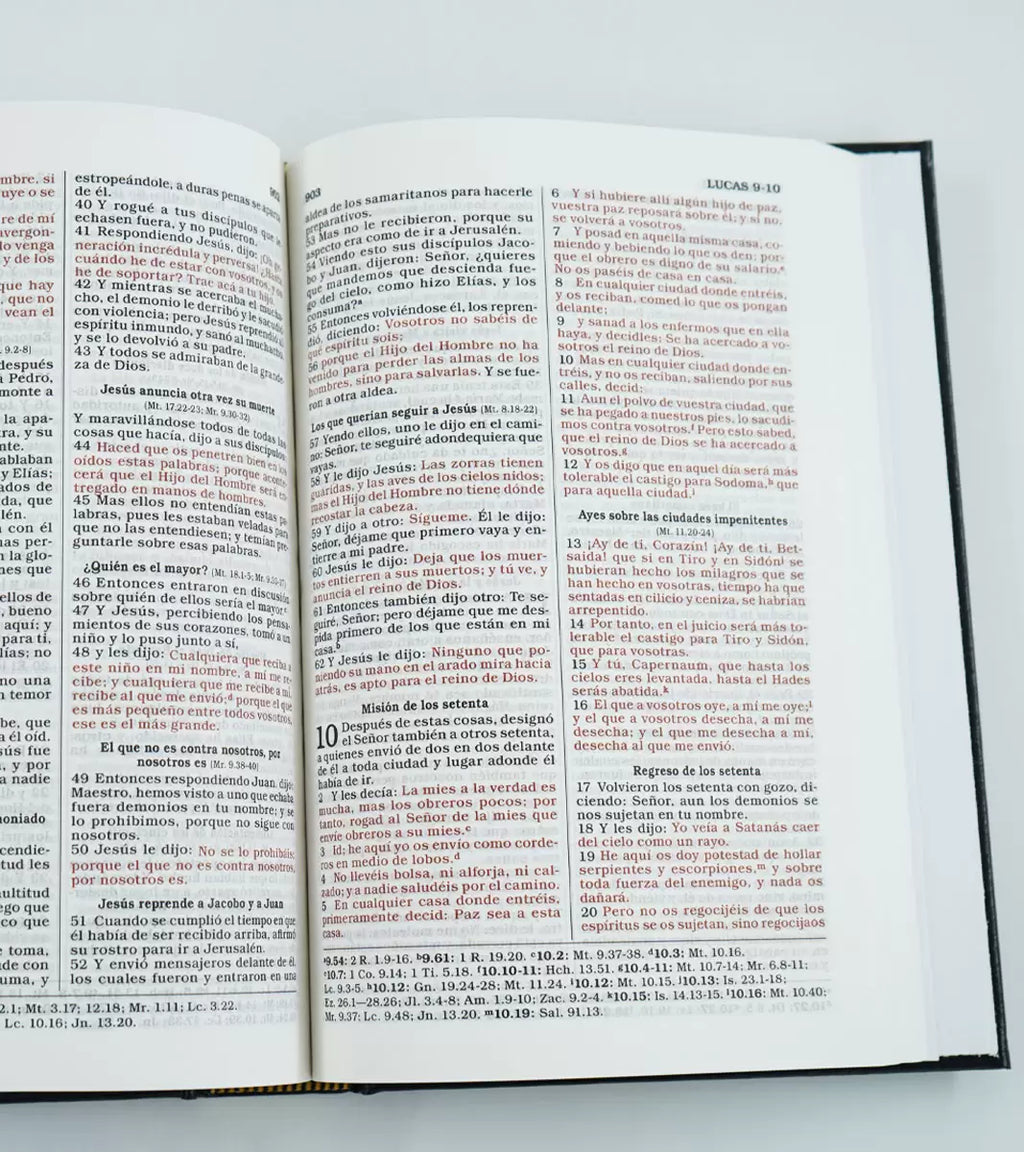 mbre, si
uye o se
re de mí
avergon-
lo venga
y de los
que hay
, que no
vean el
9.2-8]
después
Pedro,
monte a
la apa-
ra, y su
nte.
ablaban
y Elías;
ados de
da, que
lén.
con él
nas per-
n la glo-
nes que
ellos de
, bueno
aquí; y
para ti,
lías; no
no una
n temor
be, que
a él oíd.
sús fue
, y por
a nadie
moniado
scendie-
titud les
ultitud
ego que
ico que
e toma,
de con
uma, y
estropeándole, a duras penas se aparta
de él.
40 Y rogué a tus discípulos que le
echasen fuera, y no pudieron.
41 Respondiendo Jesús, dijo: ¡Oh ge-
neración incrédula y perversa! ¿Hasta
cuándo he de estar con vosotros, y os
he de soportar? Trae acá a tu hijo.
42 Y mientras se acercaba el mucha-
cho, el demonio le derribó y le sacudió
con violencia; pero Jesús reprendió al
espíritu inmundo, y sanó al muchacho,
y se lo devolvió a su padre.
43 Y todos se admiraban de la grande-
za de Dios.
Jesús anuncia otra vez su muerte
(Mt. 17.22-23; Mr. 9.30-32)
Y maravillándose todos de todas las
cosas que hacía, dijo a sus discípulos:
44 Haced que os penetren bien en los
oídos estas palabras; porque aconte-
cerá que el Hijo del Hombre será en-
tregado en manos de hombres.
45 Mas ellos no entendían estas pa-
labras, pues les estaban veladas para
que no las entendiesen; y temían pre-
guntarle sobre esas palabras.
¿Quién es el mayor? (Mt. 18.1-5; Mr. 9.33-37)
46 Entonces entraron en discusión
sobre quién de ellos sería el mayor.c
47 Y Jesús, percibiendo los pensa-
mientos de sus corazones, tomó a un
niño y lo puso junto a sí,
48 y les dijo: Cualquiera que reciba a
este niño en mi nombre, a mí me re-
cibe; y cualquiera que me recibe a mí,
recibe al que me envió;d porque el que
es más pequeño entre todos vosotros,
ese es el más grande.
El que no es contra nosotros, por
nosotros es (Mr. 9.38-40)
49 Entonces respondiendo Juan, dijo:
Maestro, hemos visto a uno que echaba
fuera demonios en tu nombre; y se
lo prohibimos, porque no sigue con
nosotros.
50 Jesús le dijo: No se lo prohibáis;
porque el que no es contra nosotros,
por nosotros es.
Jesús reprende a Jacobo y a Juan
51 Cuando se cumplió el tiempo en que
él había de ser recibido arriba, afirmó
su rostro para ir a Jerusalén.
52 Y envió mensajeros delante de él,
los cuales fueron y entraron en una
2.1; Mt. 3.17; 12.18; Mr. 1.11; Lc. 3.22.
Lc. 10.16; Jn. 13.20.
903
LUCAS 9-10
aldea de los samaritanos para hacerle
preparativos.
53 Mas no le recibieron, porque su
aspecto era como de ir a Jerusalén.
54 Viendo esto sus discípulos Jaco-
bo y Juan, dijeron: Señor, ¿quieres
que mandemos que descienda fue-
go del cielo, como hizo Elías, y los
consuma?a
55 Entonces volviéndose él, los repren-
dió, diciendo: Vosotros no sabéis de
qué espíritu sois;
56 porque el Hijo del Hombre no ha
venido para perder las almas de los
hombres, sino para salvarlas. Y se fue-
ron a otra aldea.
Los que querían seguir a Jesús (Mt. 8.18-22)
57 Yendo ellos, uno le dijo en el cami-
no: Señor, te seguiré adondequiera que
vayas.
58 Y le dijo Jesús: Las zorras tienen
guaridas, y las aves de los cielos nidos;
mas el Hijo del Hombre no tiene dónde
recostar la cabeza.
59 Y dijo a otro: Sígueme. Él le dijo:
Señor, déjame que primero vaya y en-
tierre a mi padre.
60 Jesús le dijo: Deja que los muer-
tos entierren a sus muertos; y tú ve, y
anuncia el reino de Dios.
61 Entonces también dijo otro: Te se-
guiré, Señor; pero déjame que me des-
pida primero de los que están en mi
casa.b
62 Y Jesús le dijo: Ninguno que po-
niendo su mano en el arado mira hacia
atrás, es apto para el reino de Dios.
Misión de los setenta
10 Después de estas cosas, designó
el Señor también a otros setenta,
a quienes envió de dos en dos delante
de él a toda ciudad y lugar adonde él
había de ir.
2 Y les decía: La mies a la verdad es
mucha, mas los obreros pocos; por
tanto, rogad al Señor de la mies que
envíe obreros a su mies.c
3 Id; he aquí yo os envío como corde-
ros en medio de lobos.d
4 No llevéis bolsa, ni alforja, ni cal-
zado; y a nadie saludéis por el camino.
5 En cualquier casa donde entréis,
primeramente decid: Paz sea a esta
casa.
6 Y si hubiere allí algún hijo de paz,
vuestra paz reposará sobre él; y si no,
se volverá a vosotros.
7 Y posad en aquella misma casa, co-
miendo y bebiendo lo que os den; por-
que el obrero es digno de su salario.e
No os paséis de casa en casa.
8 En cualquier ciudad donde entréis,
y os reciban, comed lo que os pongan
delante;
9 y sanad a los enfermos que en ella
haya, y decidles: Se ha acercado a vo-
sotros el reino de Dios.
10 Mas en cualquier ciudad donde en-
tréis, y no os reciban, saliendo por sus
calles, decid:
11 Aun el polvo de vuestra ciudad, que
se ha pegado a nuestros pies, lo sacudi-
mos contra vosotros.f Pero esto sabed,
que el reino de Dios se ha acercado a
vosotros.g
12 Y os digo que en aquel día será más
tolerable el castigo para Sodoma,h que
para aquella ciudad.i
Ayes sobre las ciudades impenitentes
(Mt. 11.20-24)
13 ¡Ay de ti, Corazín! ¡Ay de ti, Bet-
saida! que si en Tiro y en Sidónj se
hubieran hecho los milagros que se
han hecho en vosotras, tiempo ha que
sentadas en cilicio y ceniza, se habrían
arrepentido.
14 Por tanto, en el juicio será más to-
lerable el castigo para Tiro y Sidón,
que para vosotras.
15 Y tú, Capernaum, que hasta los
cielos eres levantada, hasta el Hades
serás abatida.k
16 El que a vosotros oye, a mí me oye;l
y el que a vosotros desecha, a mí me
desecha; y el que me desecha a mí,
desecha al que me envió.
Regreso de los setenta
17 Volvieron los setenta con gozo, di-
ciendo: Señor, aun los demonios se
nos sujetan en tu nombre.
18 Y les dijo: Yo veía a Satanás caer
del cielo como un rayo.
19 He aquí os doy potestad de hollar
serpientes y escorpiones,m y sobre
toda fuerza del enemigo, y nada os
dañará.
20 Pero no os regocijéis de que los
espíritus se os sujetan, sino regocijaos
a9.54: 2 R. 1.9-16. b9.61: 1 R. 19.20. c10.2: Mt. 9.37-38. d10.3: Mt. 10.16.
e10.7: 1 Co. 9.14; 1 Ti. 5.18. f10.10-11: Hch. 13.51. g10.4-11: Mt. 10.7-14; Mr. 6.8-11;
Lc. 9.3-5. h10.12: Gn. 19.24-28; Mt. 11.24. i10.12: Mt. 10.15. j10.13: Is. 23.1-18;
Ez. 26.1—28.26; Jl. 3.4-8; Am. 1.9-10; Zac. 9.2-4. k10.15: Is. 14.13-15. l10.16: Mt. 10.40;
Mr. 9.37; Lc. 9.48; Jn. 13.20. m10.19: Sal. 91.13.